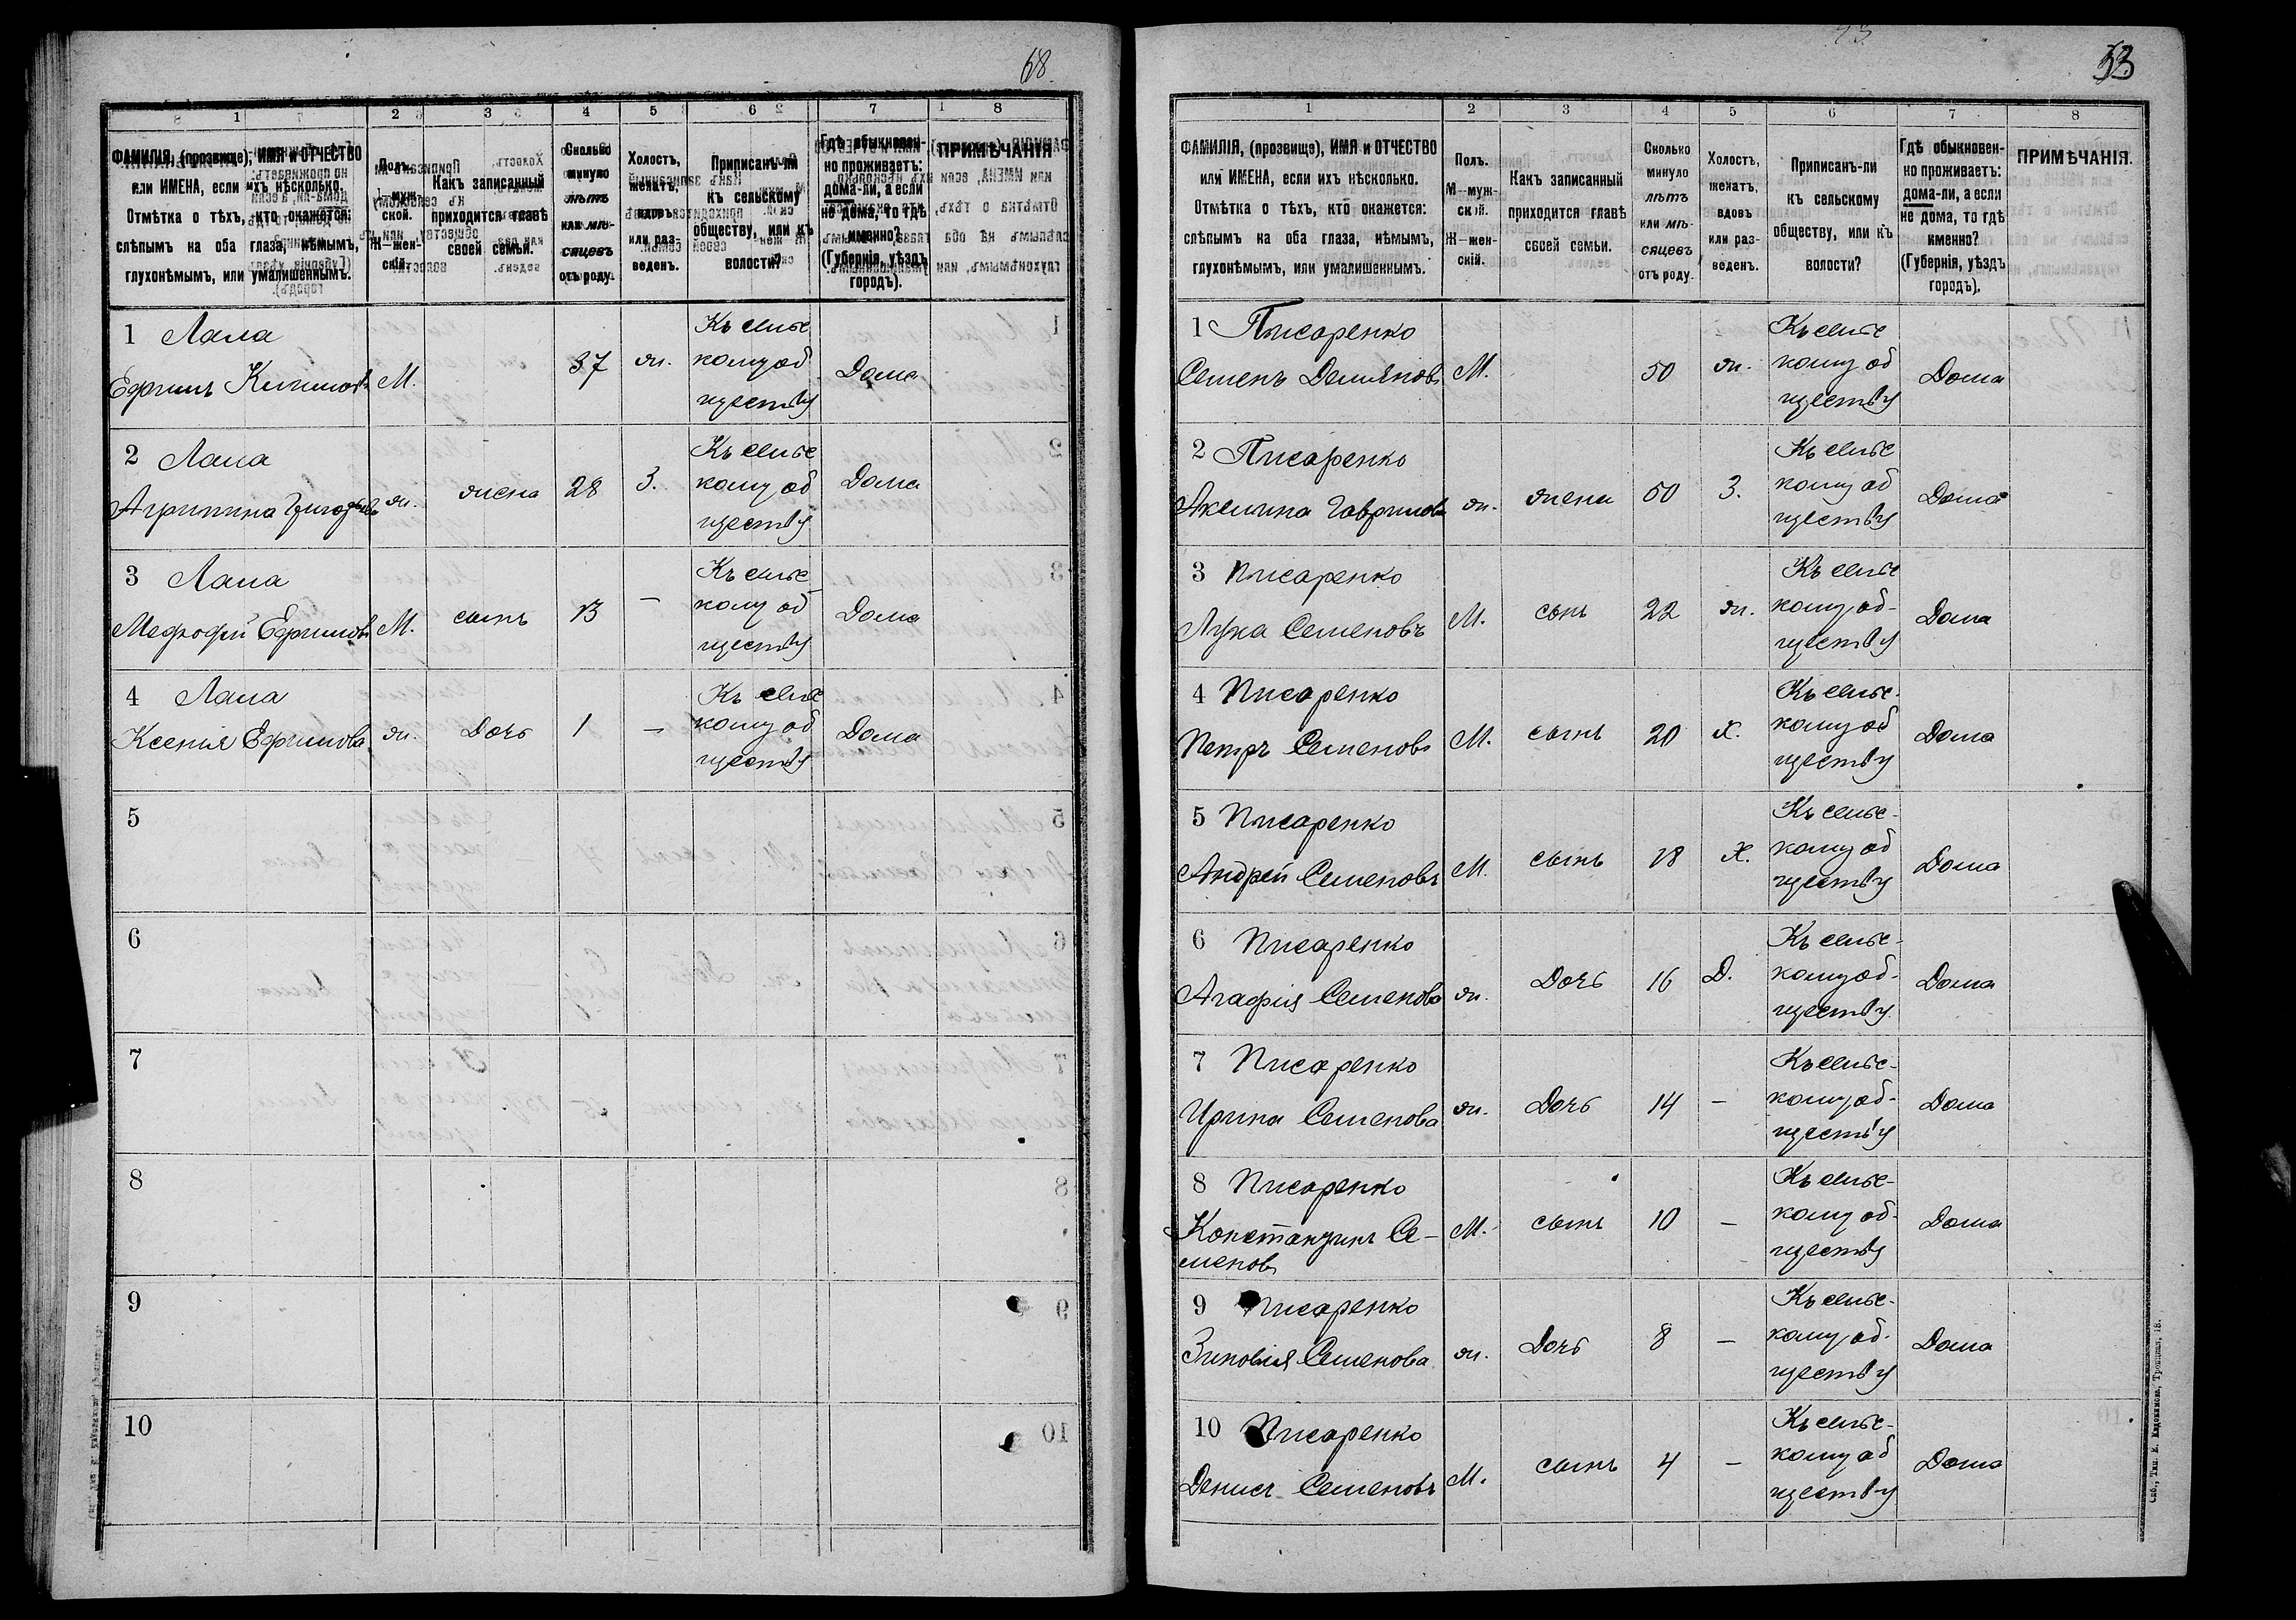 68.
1 2 3 4 5 6 7 8
ФАМИЛІЯ, (прозвище), ИМЯ и ОТЧЕСТВО
или ИМЕНА, если ихъ нѣсколько.
Отмѣтка о тѣхъ, кто окажется:
слѣпымъ на оба глаза, нѣмымъ,
глухонѣмымъ, или умалишеннымъ.
Полъ.
М—муж-
ской.
Ж—жен-
скій.
Какъ записанный
приходится главѣ
своей семьи.
Сколько
минуло
лѣтъ
или мѣ-
сяцевъ
отъ роду.
Холостъ,
женатъ,
вдовъ
или раз-
веденъ.
Приписанъ-ли
къ сельскому
обществу, или къ
волости?
Гдѣ обыкновен-
но проживаетъ:
дома-ли, а если
не дома, то гдѣ
именно?
(Губернія, уѣздъ
городъ).
ПРИМѢЧАНІЯ
1 Лама
Ефимъ М. 37 ж. Къ сельс
кому об
ществу Дома
2 Лама
Агрипина ж. жена 28 З. Къ сельс
кому об
ществу Дома
3 Лама
Ефимовъ М. сынъ 13 — Къ сельс
кому об
ществу Дома
4 Лама
Ксенія Ефимова ж. Дочь 1 — Къ сельс
кому об
ществу Дома
5
6
7
8
9
10
53
1 2 3 4 5 6 7 8
ФАМИЛІЯ, (прозвище), ИМЯ и ОТЧЕСТВО
или ИМЕНА, если ихъ нѣсколько.
Отмѣтка о тѣхъ, кто окажется:
слѣпымъ на оба глаза, нѣмымъ,
глухонѣмымъ, или умалишеннымъ.
Полъ.
М—муж-
ской.
Ж—жен-
скій.
Какъ записанный
приходится главѣ
своей семьи.
Сколько
минуло
лѣтъ
или мѣ-
сяцевъ
отъ роду.
Холостъ,
женатъ,
вдовъ
или раз-
веденъ.
Приписанъ-ли
къ сельскому
обществу, или къ
волости?
Гдѣ обыкновен-
но проживаетъ:
дома-ли, а если
не дома, то гдѣ
именно?
(Губернія, уѣздъ
городъ).
ПРИМѢЧАНІЯ.
1 Писаренко
Семенъ Демяновъ М. 50 ж. Къ сельс
кому об
ществу Дома
2 Писаренко
Акелина Гаврилова ж. жена 50 З. Къ сельс
кому об
ществу Дома
3 Писаренко
Лука Семеновъ М. сынъ 22 ж. Къ сельс
кому об-
ществу Дома
4 Писаренко
Петръ Семеновъ М. сынъ 20 Х. Къ сельс-
кому об
ществу Дома
5 Писаренко
Андрей Семеновъ М. сынъ 18 Х. Къ сельс-
кому об
ществу Дома
6 Писаренко
Агафія Семенова ж. Дочь 16 Д. Къ сельс-
кому об-
ществу Дома
7 Писаренко
Ирина Семенова ж. Дочь 14 — Къ сельс-
кому об-
ществу Дома
8 Писаренко
Константинъ Се-
меновъ М. сынъ 10 — Къ сельс-
кому об-
ществу Дома
9 Писаренко
Зиновія Семенова ж. Дочь 8 — Къ сельс-
кому об-
ществу Дома
10 Писаренко
Денисъ Семеновъ М. сынъ 4 — Къ сельс-
кому об
ществу Дома
Спб., Тип. Е. Евдокимова, Троицкая, 18.